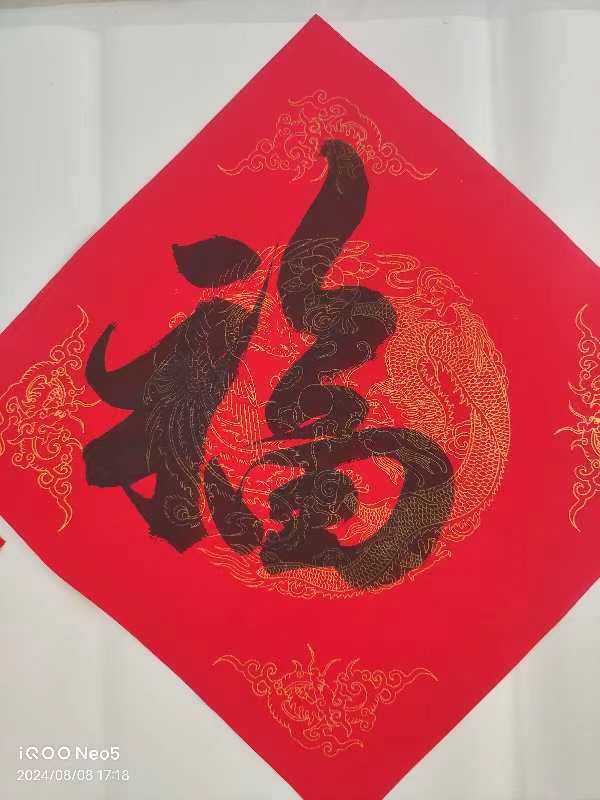 福
iQOO Neo5
2024/08/08 17:18